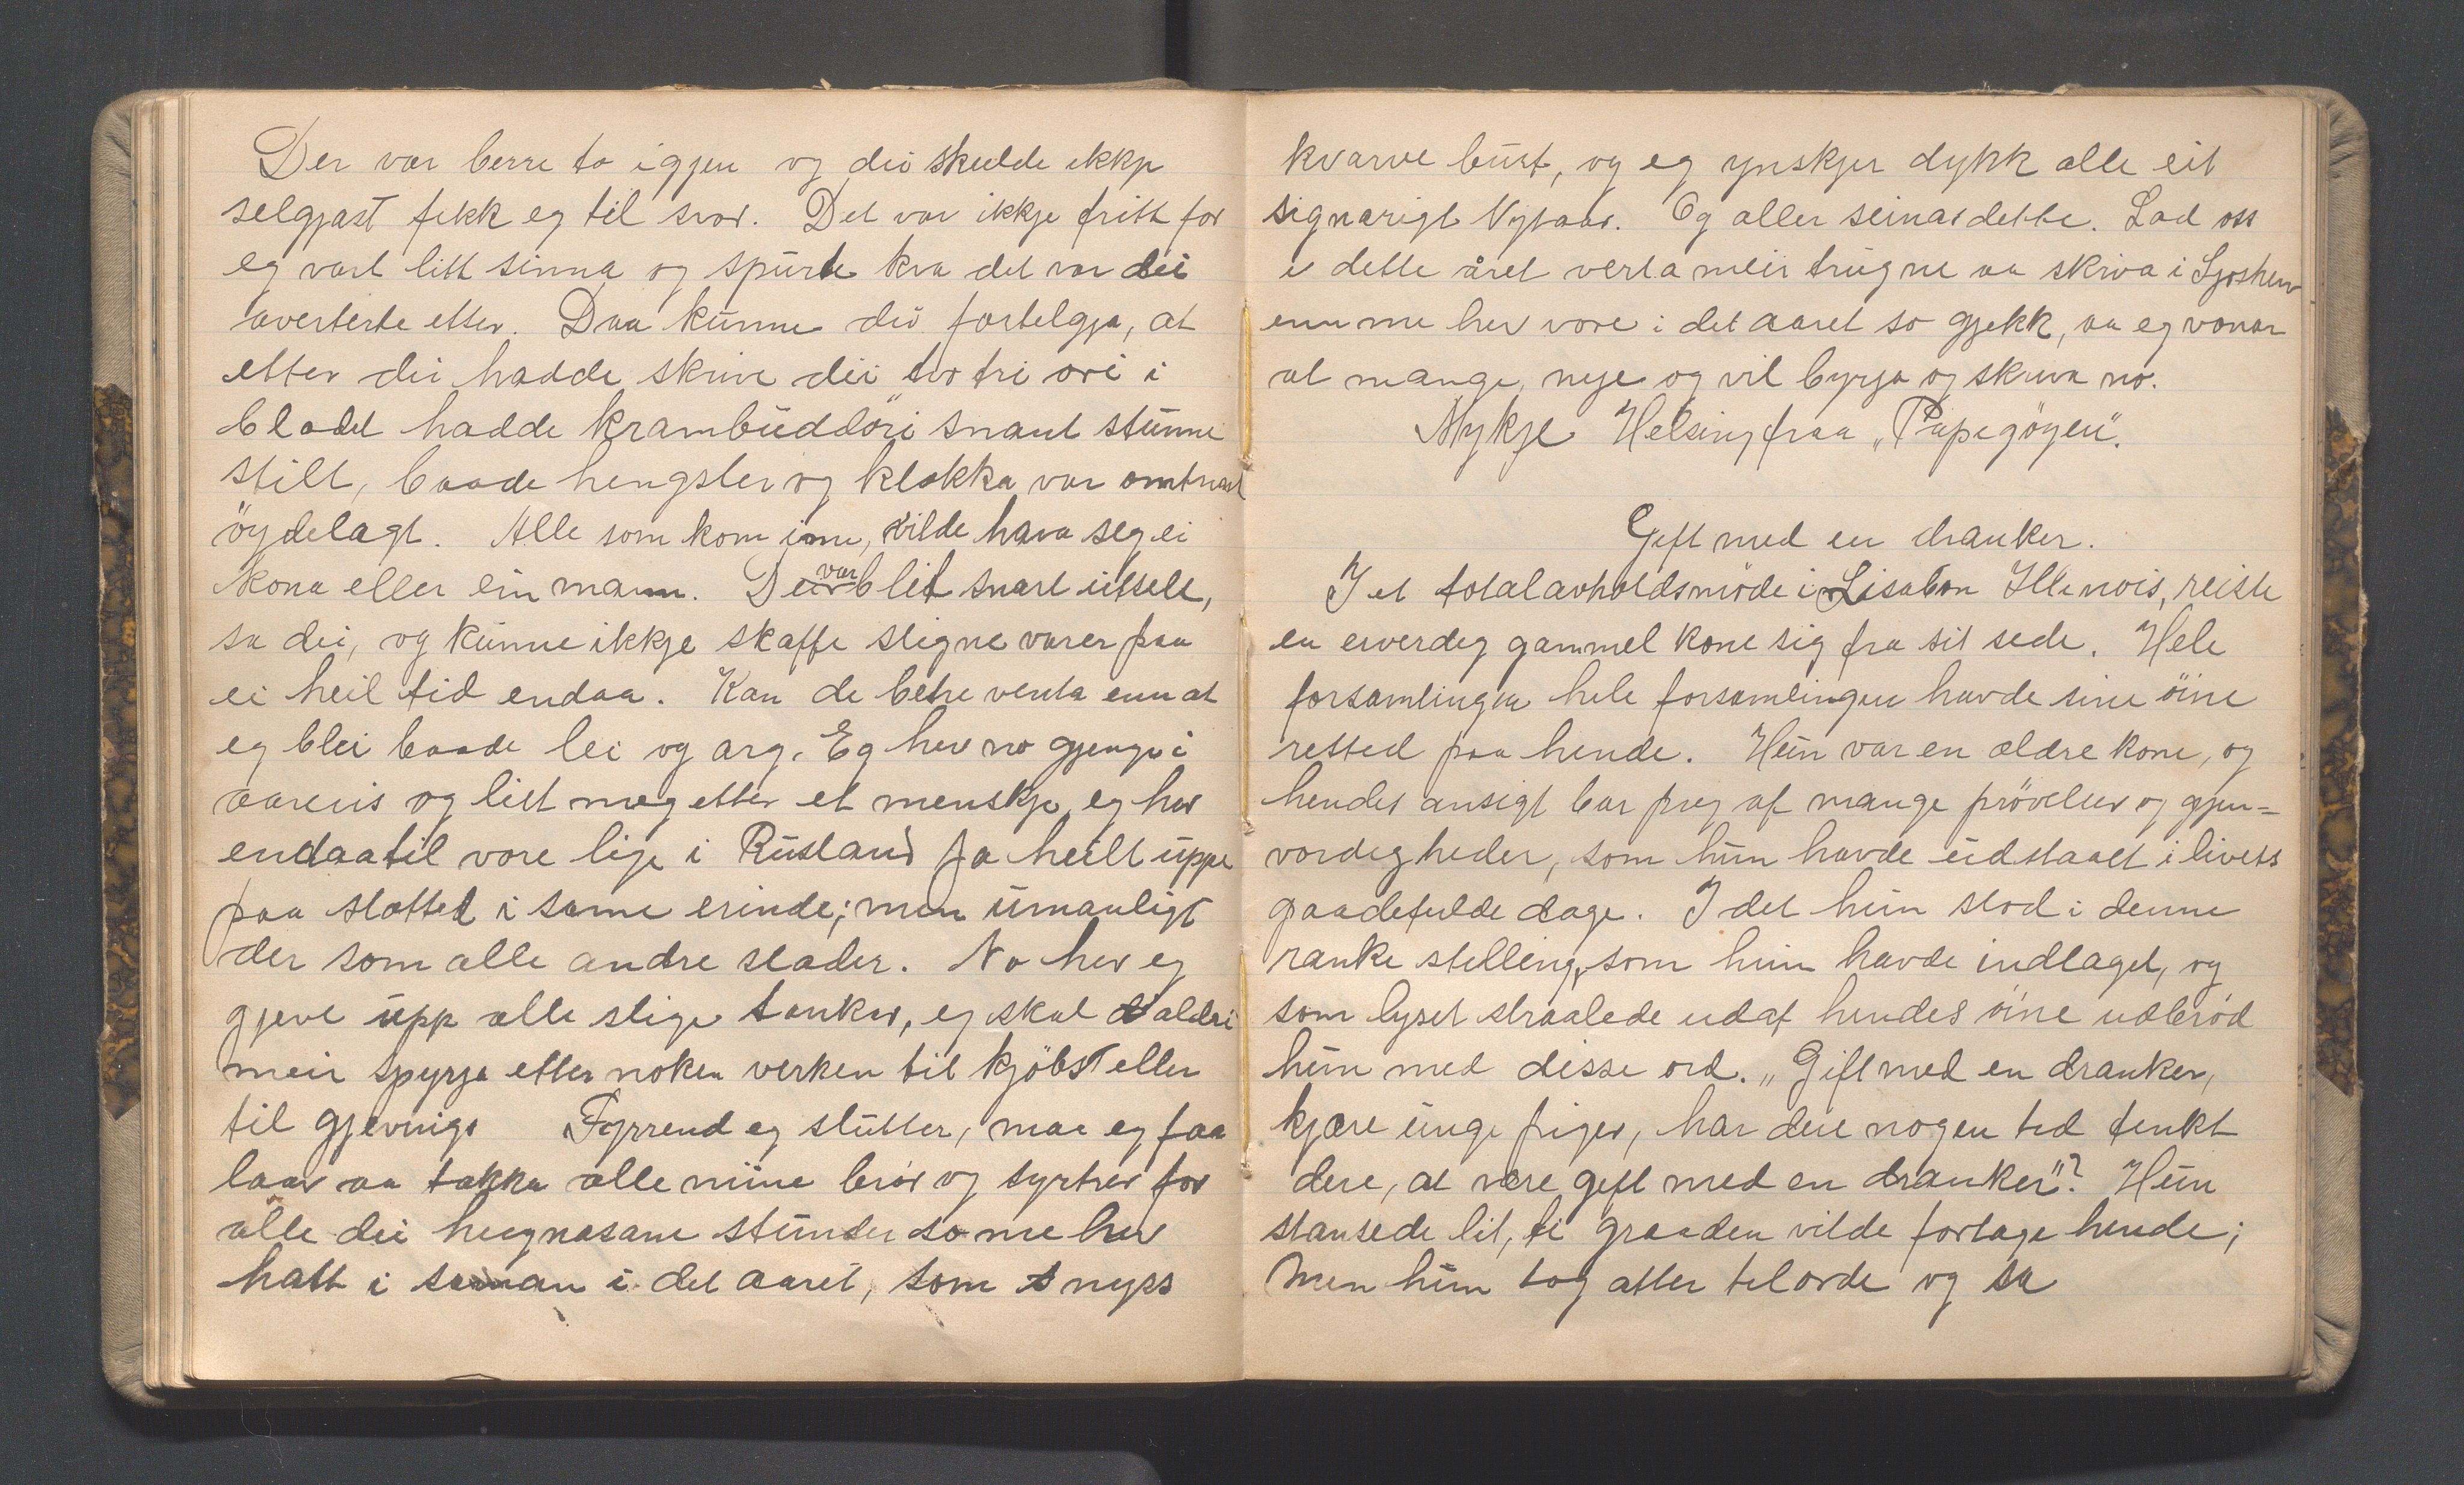 Der var berre to igjen og dei skulde ikkje
selgjast fekk eg til svar. Det var ikkje fritt for
eg vart litt sinna og spurte kva det var dei
averterte etter. Daa kunne dei fortelgja, at
etter dei hadde skrive dei tvo tri ori i
bladet hadde krambuddöri snaut stunne
still, baade hengsler og klokka var omtrent
öydelagt. Alle som kom inn, vilde hava seg ei
kona eller ein mann. Dei var blit snart utselt,
sa dei, og kunne ikkje skaffe sligne varer paa
ei heil tid endaa. Kan de betre venta enn at
eg blei baade lei og arg. Eg hev no gjenge i
aarevis og leit meg etter et menskje, eg hev
endaatil vore lige i Rusland ja heilt uppe
paa slottet i same erinde; men umauligt
der som alle andre stader. No hev eg
gjeve upp alle slige tanker, eg skal aldri
meir spyrja etter noken verken til kjöbst eller
til gjevnigs Fyrrend eg slutter, maa eg faa
laav aa takka alle miine brör og systrer for
alle dei hugnasame stunder so me hev
hatt i saman i det aaret, som nyss
kvarve burt, og eg ynskjer dykk alle eit
signarigt Nytaar. Og aller seinar dette. Lad oss
i dette året verta meir trugne aa skriva i Ljosken
enn me hev vore i det aaret so gjekk, aa eg vonar
at mange, nye og vil byrja og skriva no.
Mykje Helsing fraa „Papegöyen".
Gift med en dranker.
I et totalavholdsmöde i Lisabon Illenois, reiste
en erverdig gammel kone sig fra sit sede. Hele
forsamlingen hele forsamlingen havde sine öine
retted paa hende. Hun var en ældre kone, og
hendes ansigt bar preg af mange prövelser og gjen=
vordigheder, som hun havde udstaaet i livets
gaadefulde dage. I det hun stod i denne
ranke stelling, som hun havde indtaget, og
som lyset straalede udaf hendes öine udbröd
hun med disse ord. „Gift med en dranker,
kjære unge piger, har dere nogen tid tenkt
dere, at være gift med en dranker"? Hun
stansede lit, ti graaden vilde fortage hende;
men hun tog atter tilorde og sa